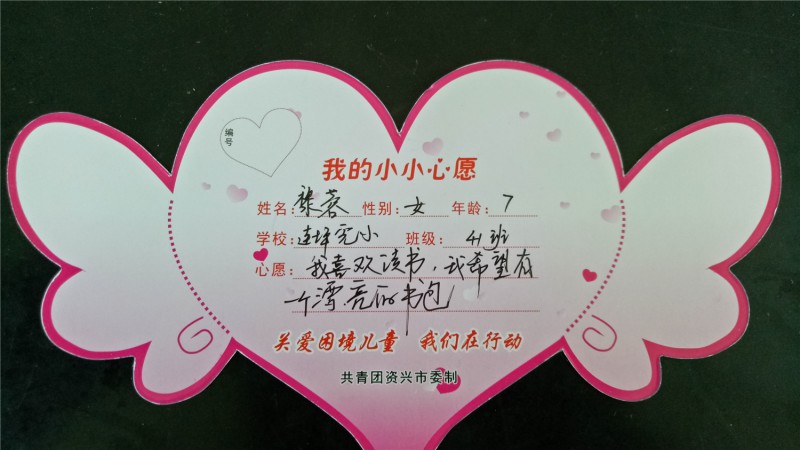 编号
我的小小心愿
姓名: 蓉 性别: 女 年龄: 7
学校: 连坪完小 班级: 41班
心愿: 我喜欢读书,我希望有
一个漂亮的书包
关爱困境儿童 我们在行动
共青团资兴市委制